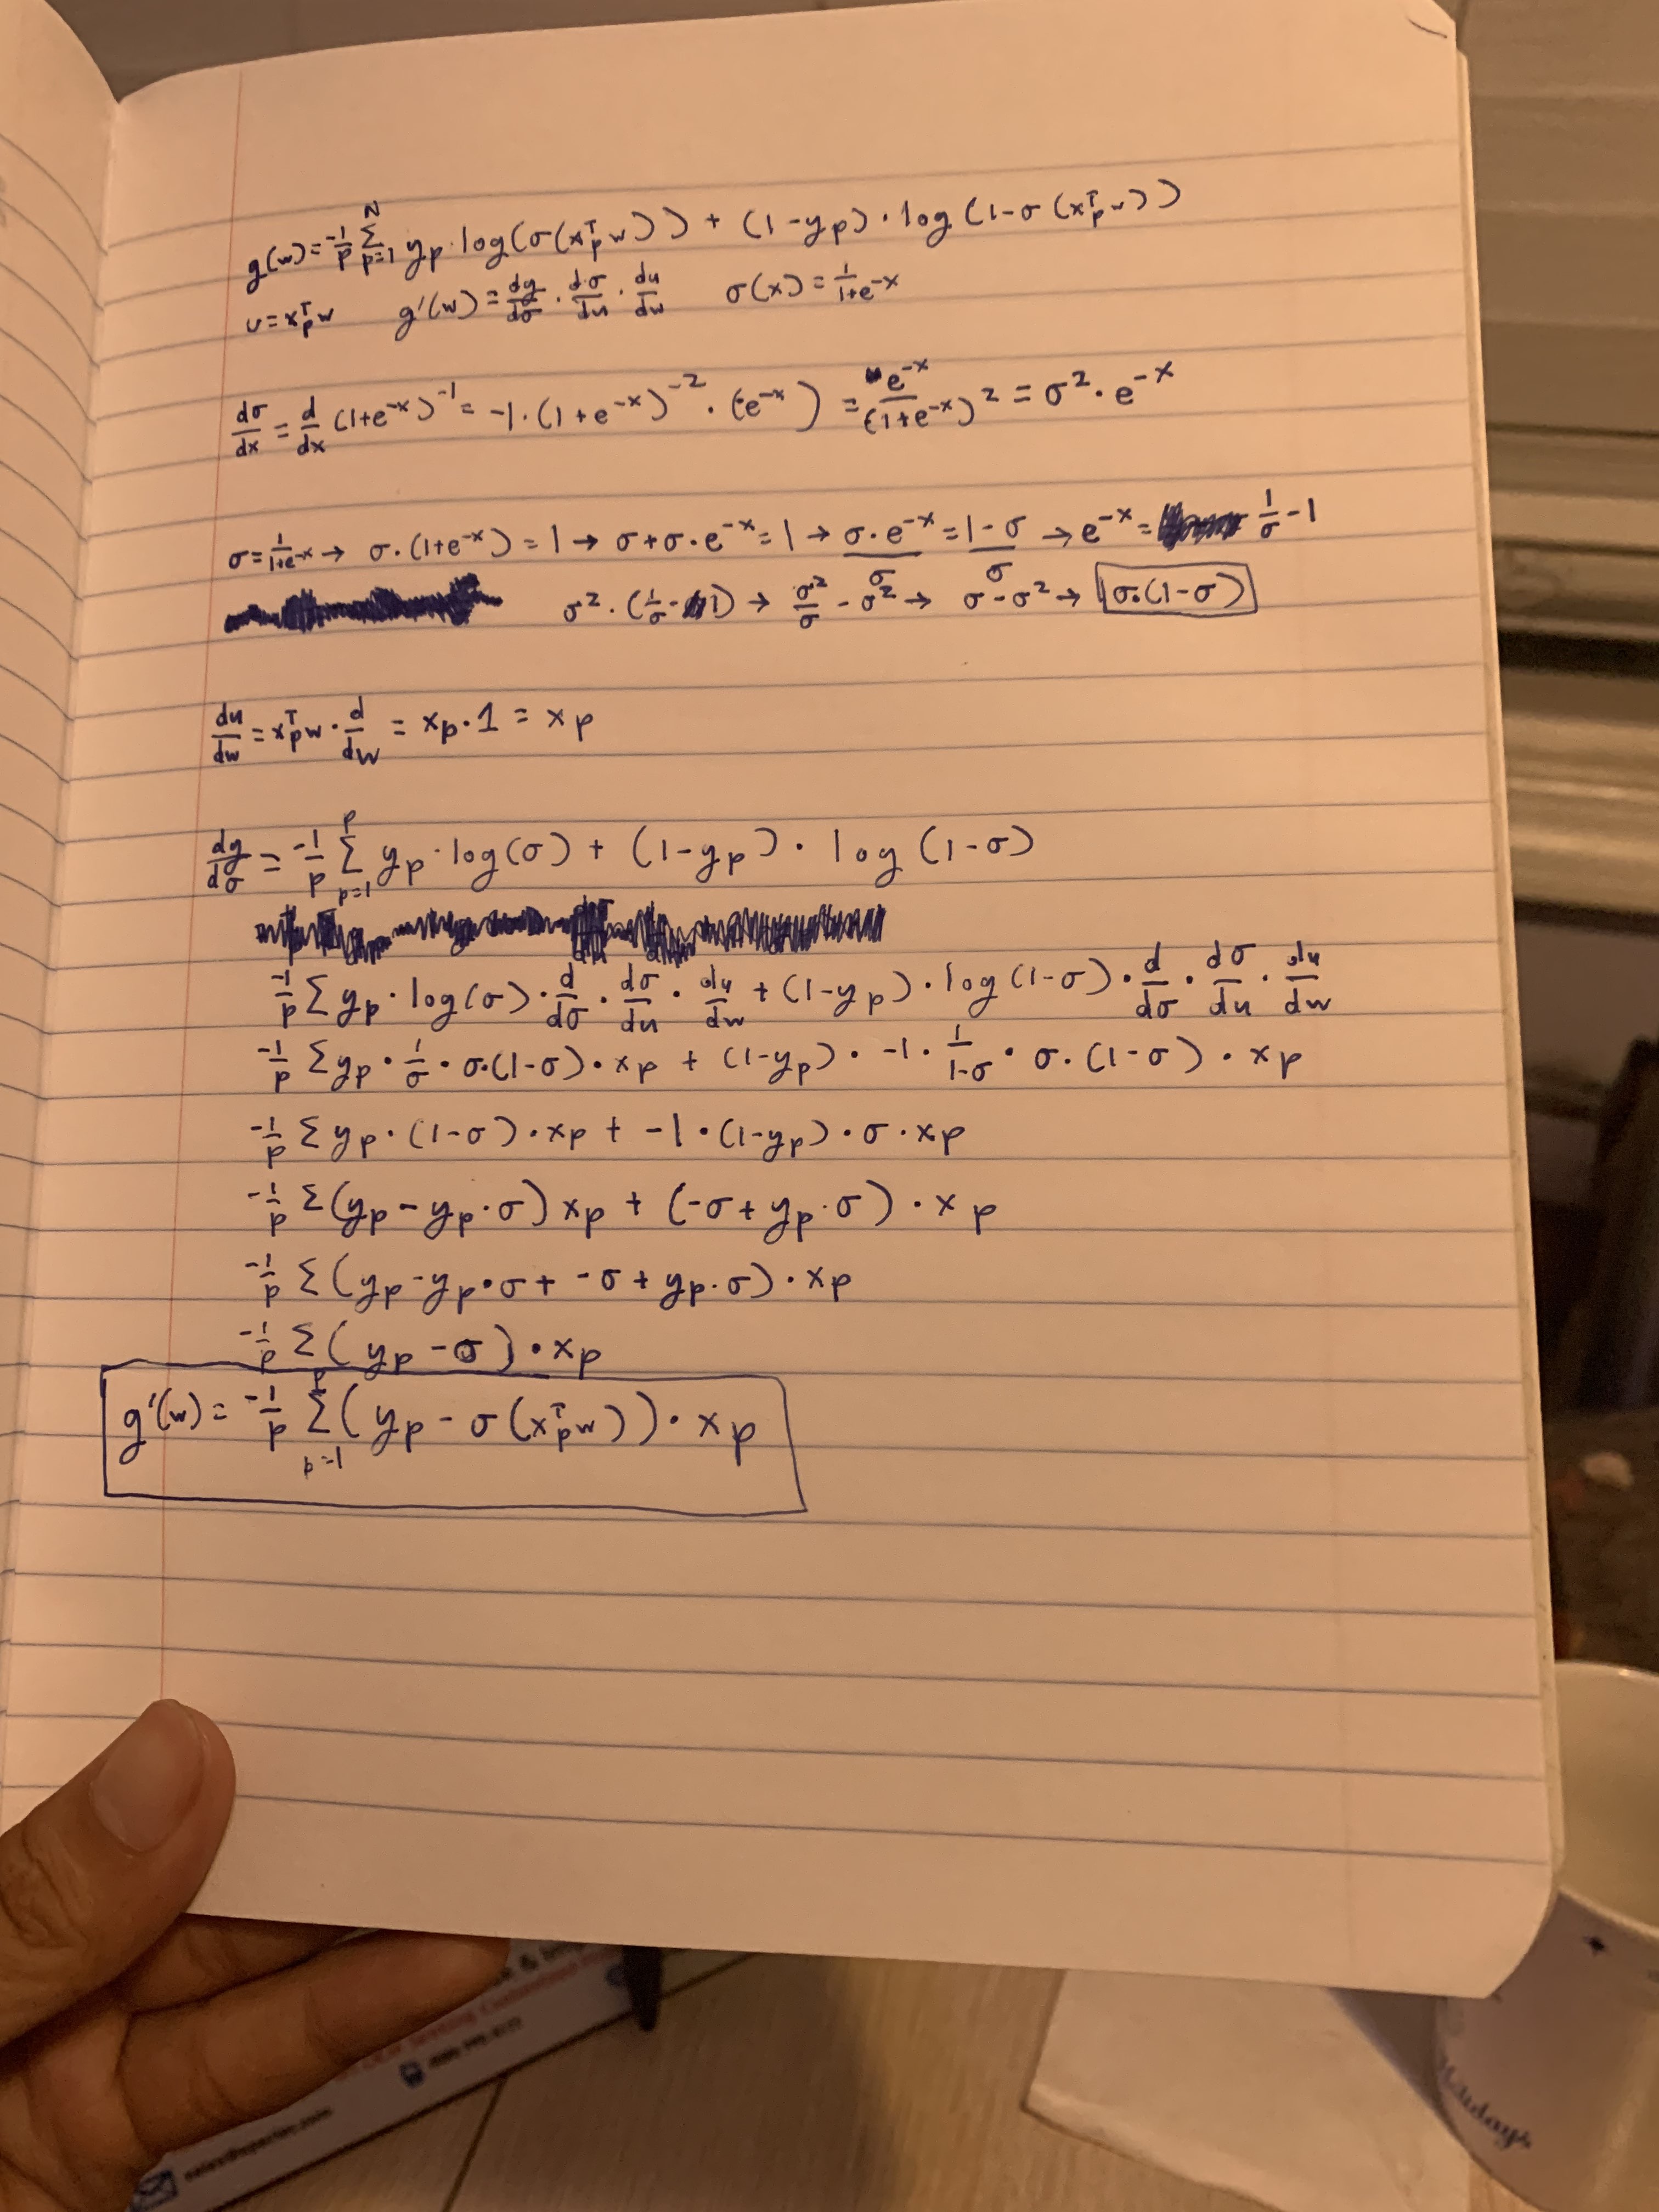 g(w) = -1/p Σ_{p=1}^{N} y_p · log(σ(x_p^T w)) + (1-y_p) · log(1-σ(x_p^T w))
u = x_p^T w   g'(w) = dg/dσ · dσ/du · du/dw   σ(x) = 1/(1+e^{-x})
dσ/dx = d/dx (1+e^{-x})^{-1} = -1·(1+e^{-x})^{-2} · (-e^{-x}) = e^{-x}/(1+e^{-x})^2 = σ² · e^{-x}
σ = 1/(1+e^{-x}) → σ·(1+e^{-x}) = 1 → σ+σ·e^{-x} = 1 → σ·e^{-x}/σ = (1-σ)/σ → e^{-x} = 1/σ - 1
σ² · (1/σ - 1) → σ²/σ - σ² → σ - σ² → σ·(1-σ)
du/dw = x_p^T w · d/dw = x_p · 1 = x_p
dg/dσ = -1/p Σ_{p=1}^{P} y_p · log(σ) + (1-y_p) · log(1-σ)
-1/p Σ y_p · log(σ) · d/dσ · dσ/du · du/dw + (1-y_p) · log(1-σ) · d/dσ · dσ/du · du/dw
-1/p Σ y_p · 1/σ · σ·(1-σ) · x_p + (1-y_p) · -1 · 1/(1-σ) · σ·(1-σ) · x_p
-1/p Σ y_p · (1-σ) · x_p + -1 · (1-y_p) · σ · x_p
-1/p Σ (y_p - y_p·σ) x_p + (-σ + y_p·σ) · x_p
-1/p Σ (y_p - y_p·σ + -σ + y_p·σ) · x_p
-1/p Σ (y_p - σ) · x_p
g'(w) = -1/p Σ_{p=1}^{P} (y_p - σ(x_p^T w)) · x_p